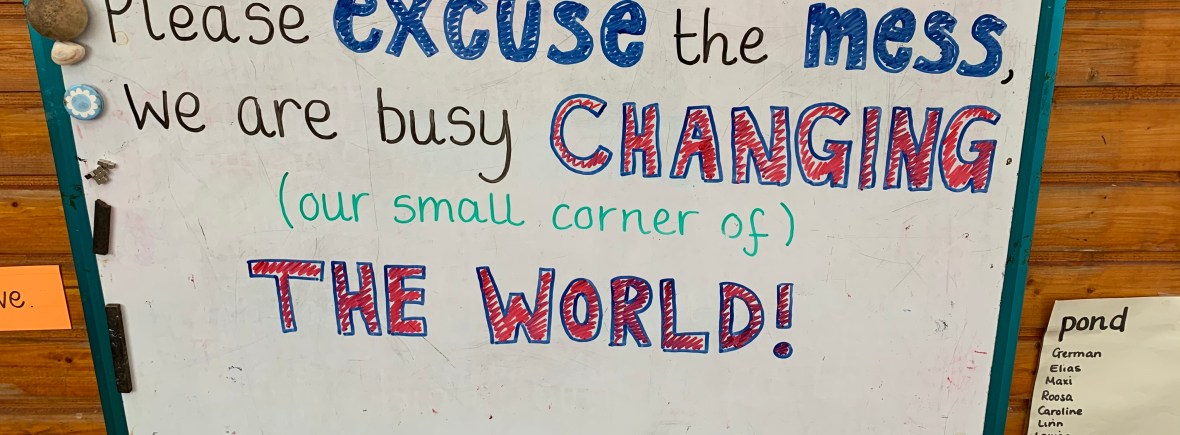 Please excuse the mess,
we are busy CHANGING
(our small corner of)
THE WORLD!
pond
German
Elias
Maxi
Roosa
Caroline
Linn